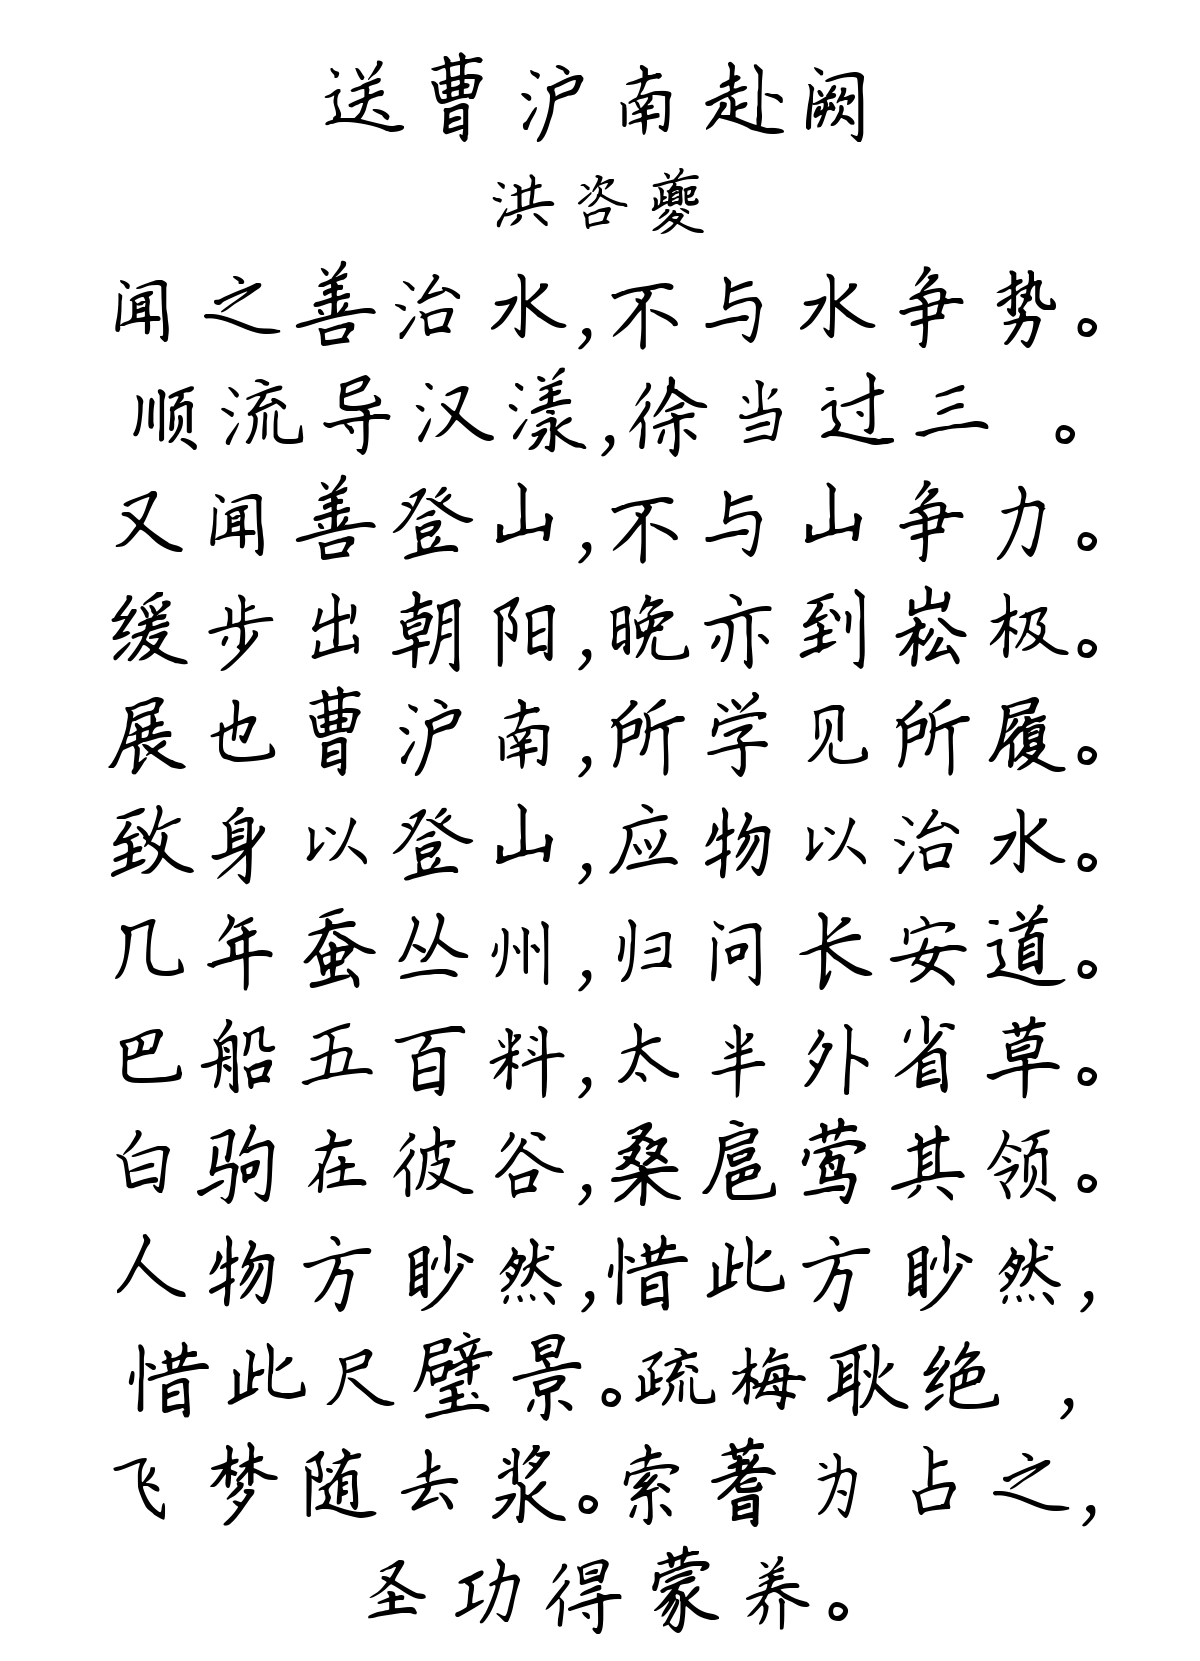 送曹沪南赴阙
洪咨夔
闻之善治水,不与水争势。
顺流导汉漾,徐当过三 。
又闻善登山,不与山争力。
缓步出朝阳,晚亦到崧极。
展也曹沪南,所学见所履。
致身以登山,应物以治水。
几年蚕丛州,归问长安道。
巴船五百料,太半外省草。
白驹在彼谷,桑扈莺其领。
人物方眇然,惜此方眇然,
惜此尺璧景。疏梅耿绝 ,
飞梦随去浆。索蓍为占之,
圣功得蒙养。